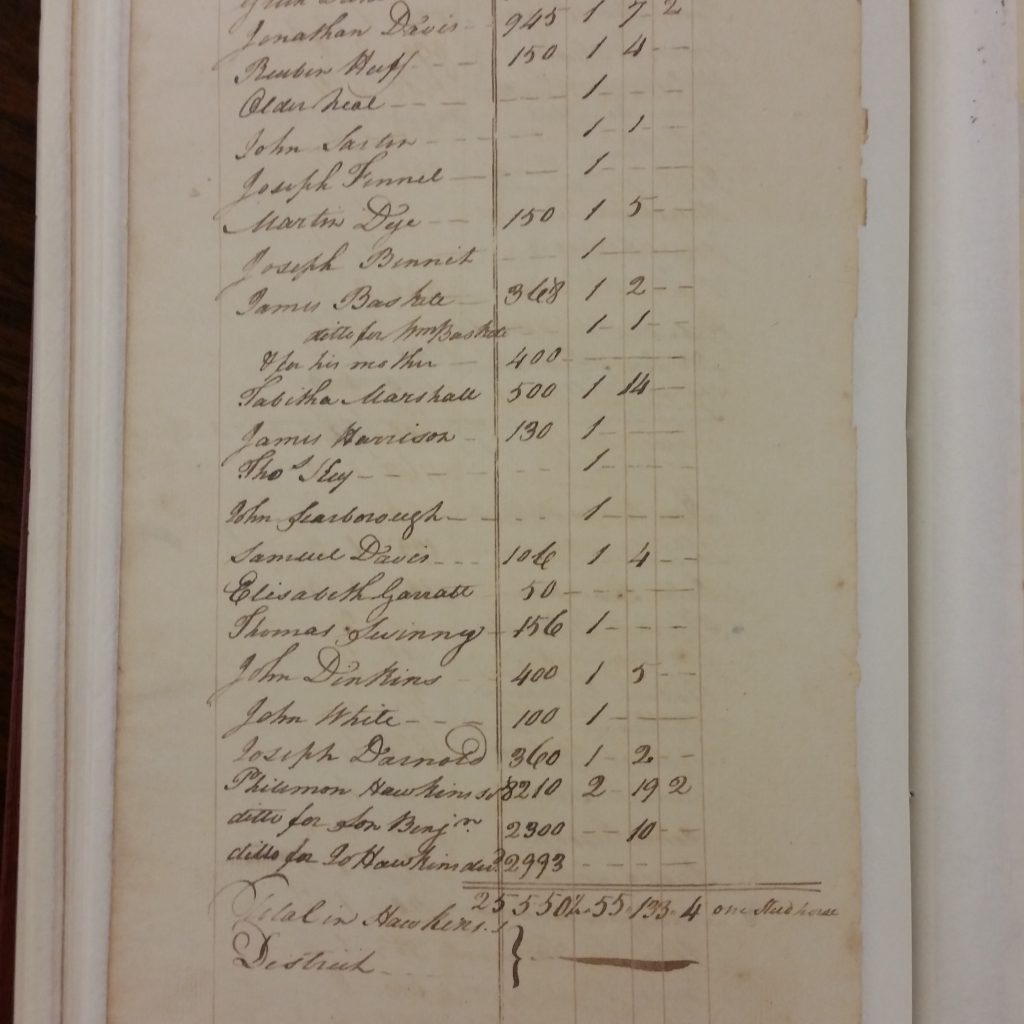 Jonathan Davis - 945 1 7 2
Reubin Huff - - - 150 1 4 - -
Older Neal - - - - - - 1 - - -
John Sartin - - - - 1 1 - -
Joseph Finnel - - - 1 - - -
Martin Dye - - 150 1 5 - -
Joseph Binnit - - 1 - - -
James Baskett - 368 1 2 - -
ditto for Wm Baskett - - 1 1 - -
& for his mother - 400 - - - -
Tabitha Marshall 500 1 14 - -
James Harrison - 130 1 - - -
Thos Key - - - - - 1 - - -
John Scarborough - - - - 1 - - -
Samuel Davis - - - 106 1 4 - -
Elisabeth Garratt - 50 - - - -
Thomas Swinny - 156 1 - - -
John Dinkins - 400 1 5 - -
John White - - - 100 1 - - -
Joseph Darnold 360 1 2 - -
Philemon Hawkins Sr 8210 2 19 2
ditto for Son Benjn. 2300 - - 10 - -
ditto for Jo Hawkins decd. 2993 - - - -
Total in Hawkins.s 25550½ 55 133 4 one Stud horse
District - }